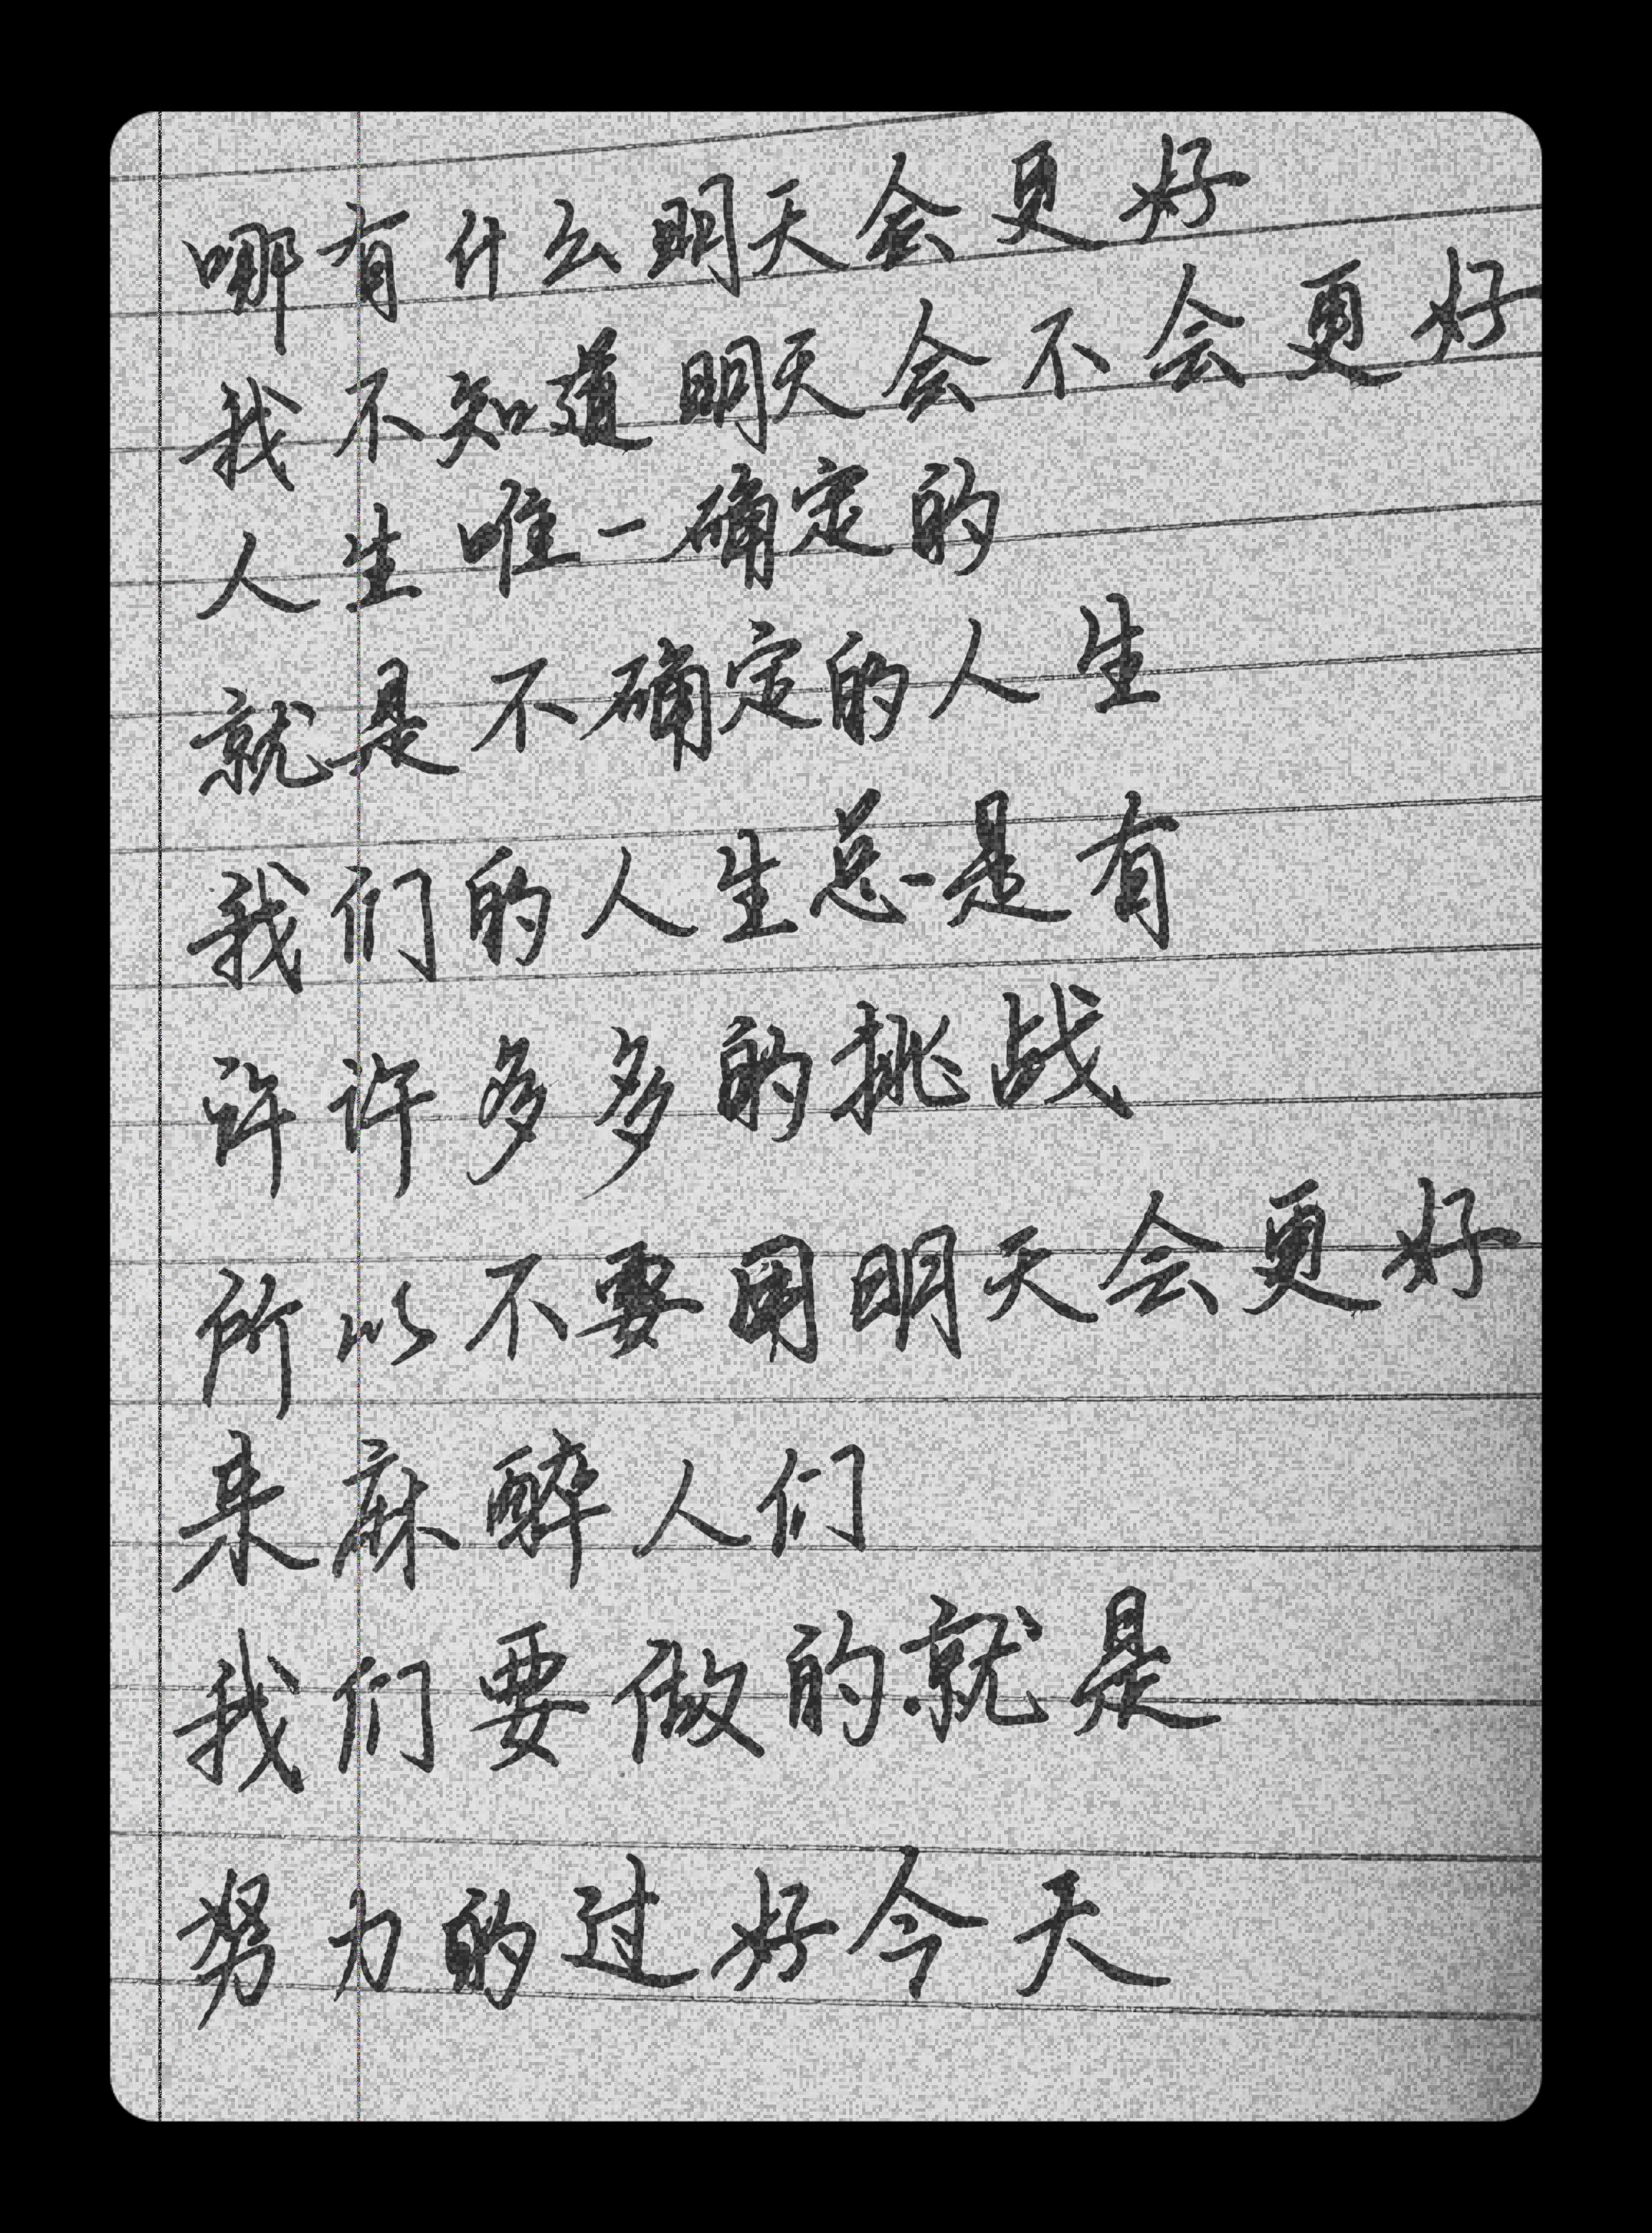 哪有什么明天会更好
我不知道明天会不会更好
人生唯一确定的
就是不确定的人生
我们的人生总是有
许许多多的挑战
所以不要用明天会更好
来麻醉人们
我们要做的就是
努力的过好今天